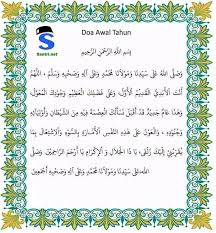 Doa Awal Tahun
S
Santri.net
بِسْمِ اللَّهِ الرَّحْمَنِ الرَّحِيْمِ
وَصَلَّى اللهُ عَلَى سَيِّدِنَا وَمَوْلَانَا مُحَمَّدٍ وَعَلَى آلِهِ وَصَحْبِهِ وَسَلَّمَ ، اللَّهُمَّ
أَنْتَ الْأَبَدِيُّ الْقَدِيْمُ الْأَوَّلُ، وَعَلَى فَضْلِكَ الْعَظِيْمِ وَجُوْدِكَ الْمُعَوَّلُ،
وَهَذَا عَامٌ جَدِيْدٌ قَدْ أَقْبَلَ نَسْأَلُكَ الْعِصْمَةَ فِيْهِ مِنَ الشَّيْطَانِ وَأَوْلِيَائِهِ
وَجُنُوْدِهِ ، وَالْعَوْنَ عَلَى هَذِهِ النَّفْسِ الْأَمَّارَةِ بِالسُّوْءِ، وَالْاِشْتِغَالَ بِمَا
يُقَرِّبُنِيْ إِلَيْكَ زُلْفَى، يَا ذَا الْجَلَالِ وَ الْإِكْرَامِ يَا أَرْحَمَ الرَّاحِمِيْنَ، وَصَلَّى
اللهُ عَلَى سَيِّدِنَا مُحَمَّدٍ وَعَلَى آلِهِ وَصَحْبِهِ وَسَلَّمَ